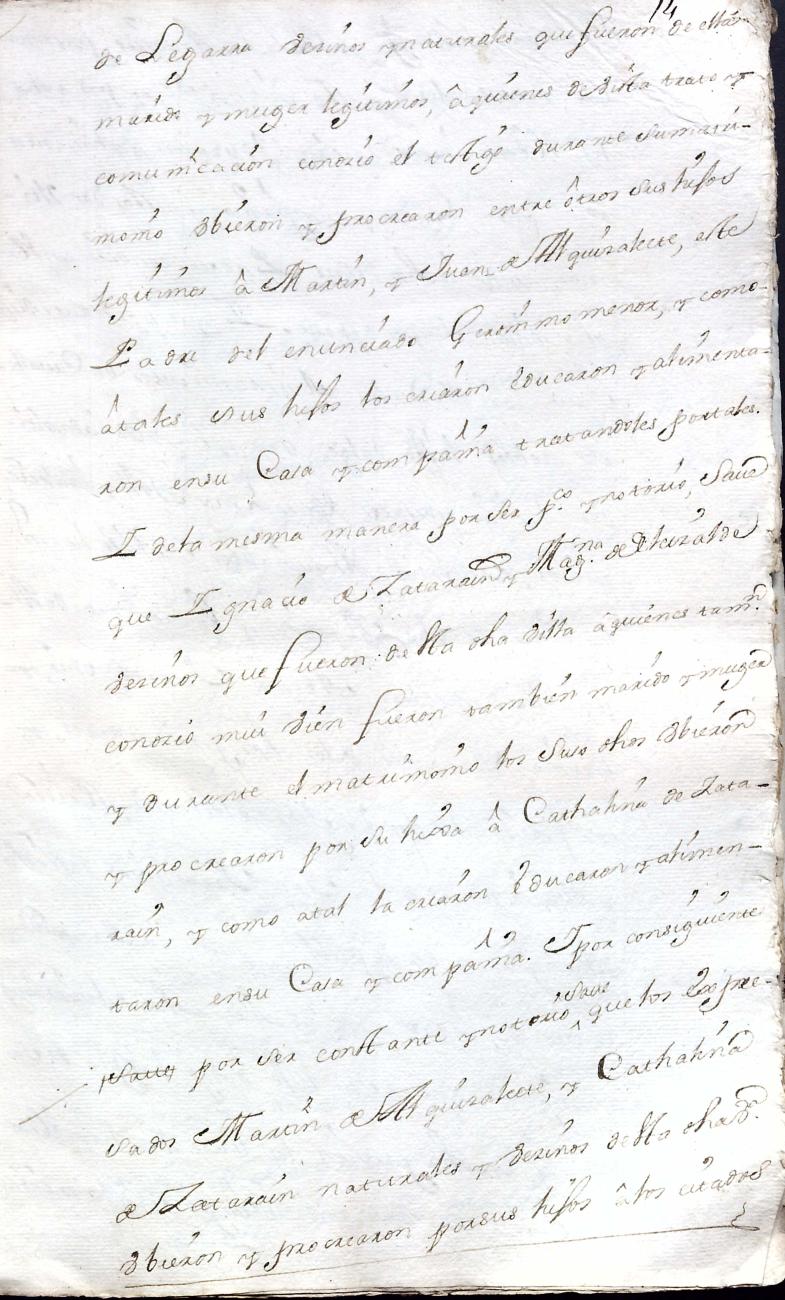 14
de Legarra vezinos y naturales que fueron de ella
marido y muger legitimos, â quienes de vista trato y
comunicacion conozio el testigo durante su matri-
monio obieron y procrearon entre ôtros sus hijos
legitimos â Martin, y Juan de Alquizalete, este
Padre del enunciado Geronimo menor, y como
âtales sus hijos los criaron educaron y alimenta-
ron ensu Casa y compañia tratandoles portales.
I dela mesma manera por ser pco y notorio, save
que Ignacio de Zatarain y Magna de Elizalde
vezinos que fueron de sta dha villa â quienes tamn
conozio mui bien fueron tambien marido y muger
y durante el matrimonio los suso dhos obieron
y procrearon por su hixa â Cathalina de Zata-
rain, y como atal la criaron educaron y alimen-
taron ensu Casa y compañia. I por consiguiente
save por ser constante y notorio save que los Expre-
sados Martin de Alquizalete, y Cathalina
de Zatarain naturales y vezinos desta dha va
obieron y procrearon porsus hijos â los citados